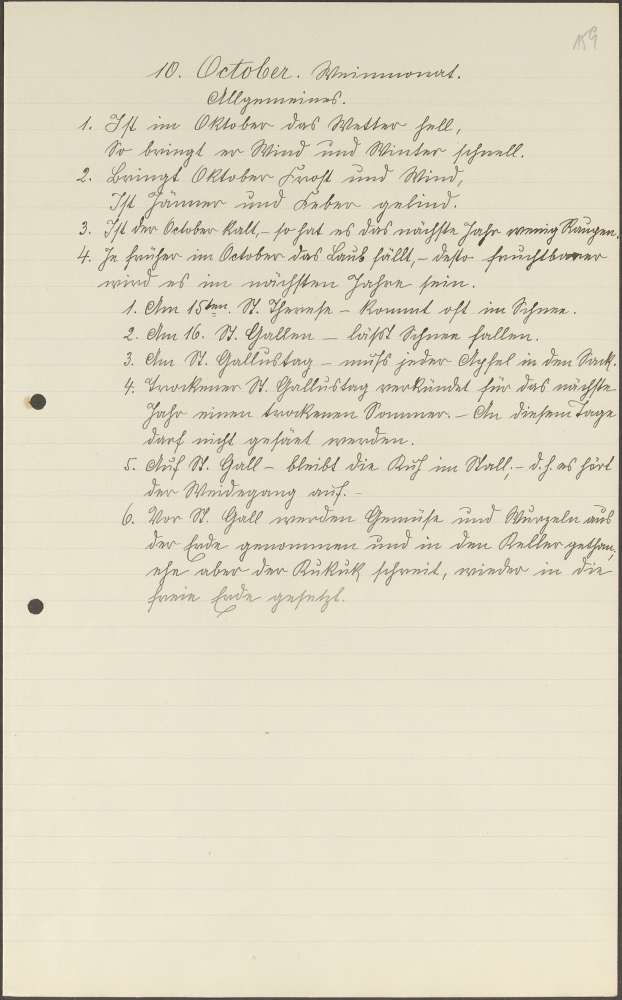 159
10. October. Weinmonat.
Allgemeines.
1. Ist im Oktober das Wetter hell,
So bringt er Wind und Winter schnell.
2. Bringt Oktober Frost und Wind,
Ist Jänner und Feber gelind.
3. Ist der October kalt, – so hat es das nächste Jahr wenig Raupen.
4. Je früher im October das Laub fällt, – desto fruchtbarer
wird es im nächsten Jahre sein.
1. Am 15ten. St. Therese – kommt oft im Schnee.
2. Am 16. St. Gallen – läßt Schnee fallen.
3. Am St. Gallustag – muß jeder Apfel in den Sack.
4. Trockener St. Gallustag verkündet für das nächste
Jahr einen trockenen Sommer. – An diesem Tage
darf nicht gesäet werden.
5. Auf St. Gall – bleibt die Kuh im Stall; – d.h. es hört
der Weidegang auf. –
6. Vor St. Gall werden Gemüse und Wurzeln aus
der Erde genommen und in den Keller gethan,
ehe aber der Kukuk schreit, wieder in die
freie Erde gesetzt.